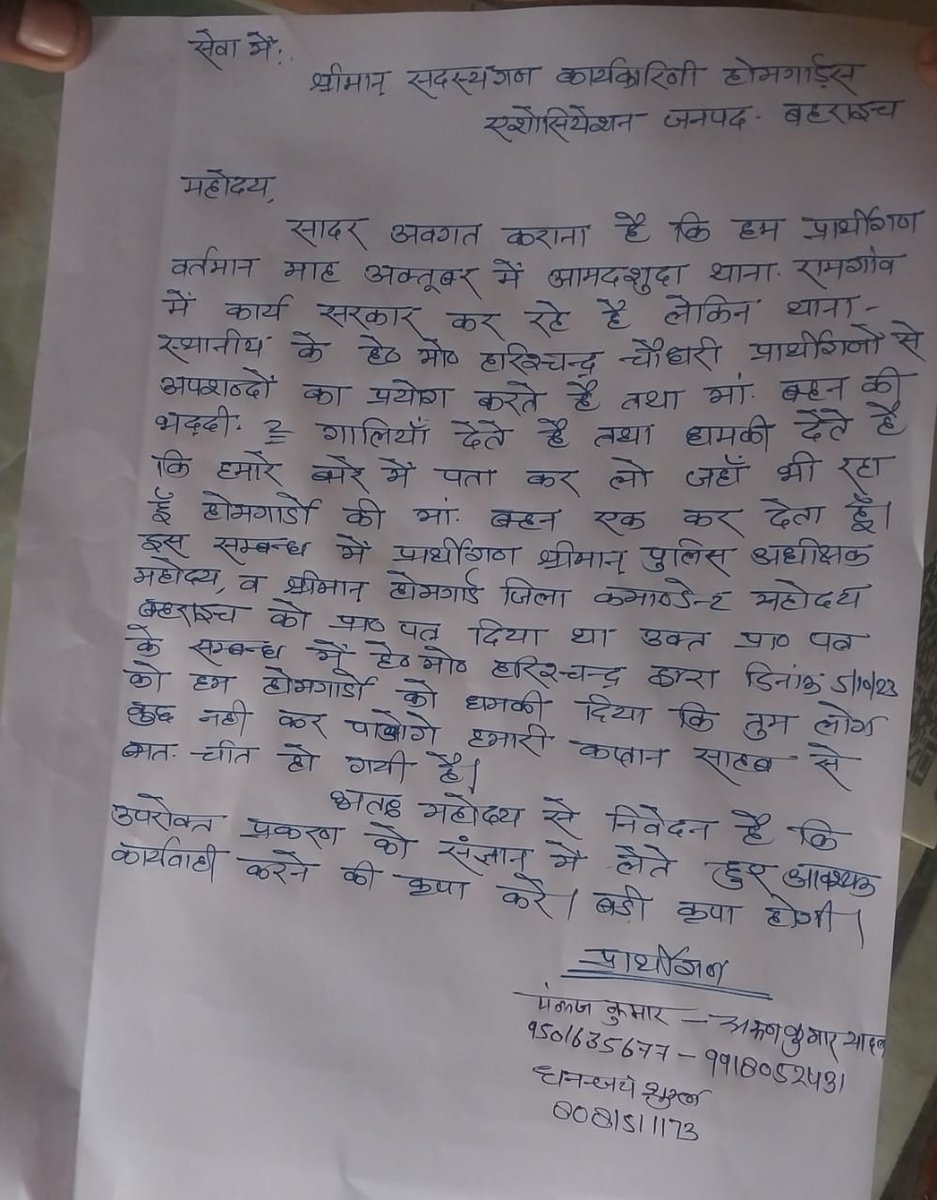 सेवा में,
श्रीमान् सदस्यगण कार्यकारिणी होमगार्ड्स
एशोसियेशन जनपद. बहराइच
महोदय,
सादर अवगत कराना है कि हम प्रार्थीगण
वर्तमान माह अक्तूबर में आमदशुदा थाना. रामगांव
में कार्य सरकार कर रहे है लेकिन थाना-
स्थानीय के हे० मो० हरिश्चन्द्र चौधरी प्रार्थीगणों से
अपशब्दों का प्रयोग करते है तथा मां. बहन की
भद्दी. २ गालियाँ देते है तथा धमकी देते है
कि हमारे बारे में पता कर लो जहाँ भी रहा
हूँ होमगार्डो की मां. बहन एक कर देता हूँ।
इस सम्बन्ध में प्रार्थीगण श्रीमान् पुलिस अधीक्षक
महोदय, व श्रीमान् होमगार्ड जिला कमाण्डेन्ट महोदय
बहराइच को प्रा० पत्र दिया था उक्त प्रा० पत्र
के सम्बन्ध में हे० मो० हरिश्चन्द्र द्वारा दिनांक 5/10/23
को हम होमगार्डो को धमकी दिया कि तुम लोग
कुछ नही कर पाओगे हमारी कप्तान साहब से
बात-चीत हो गयी है।
अतः महोदय से निवेदन है कि
उपरोक्त प्रकरण को संज्ञान में लेते हुए आवश्यक
कार्यवाही करने की कृपा करे। बड़ी कृपा होगी।
प्रार्थीगण
पंकज कुमार - अरूण कुमार यादव
9501635677 - 9918052431
धनन्जय शुक्ल
8081511173